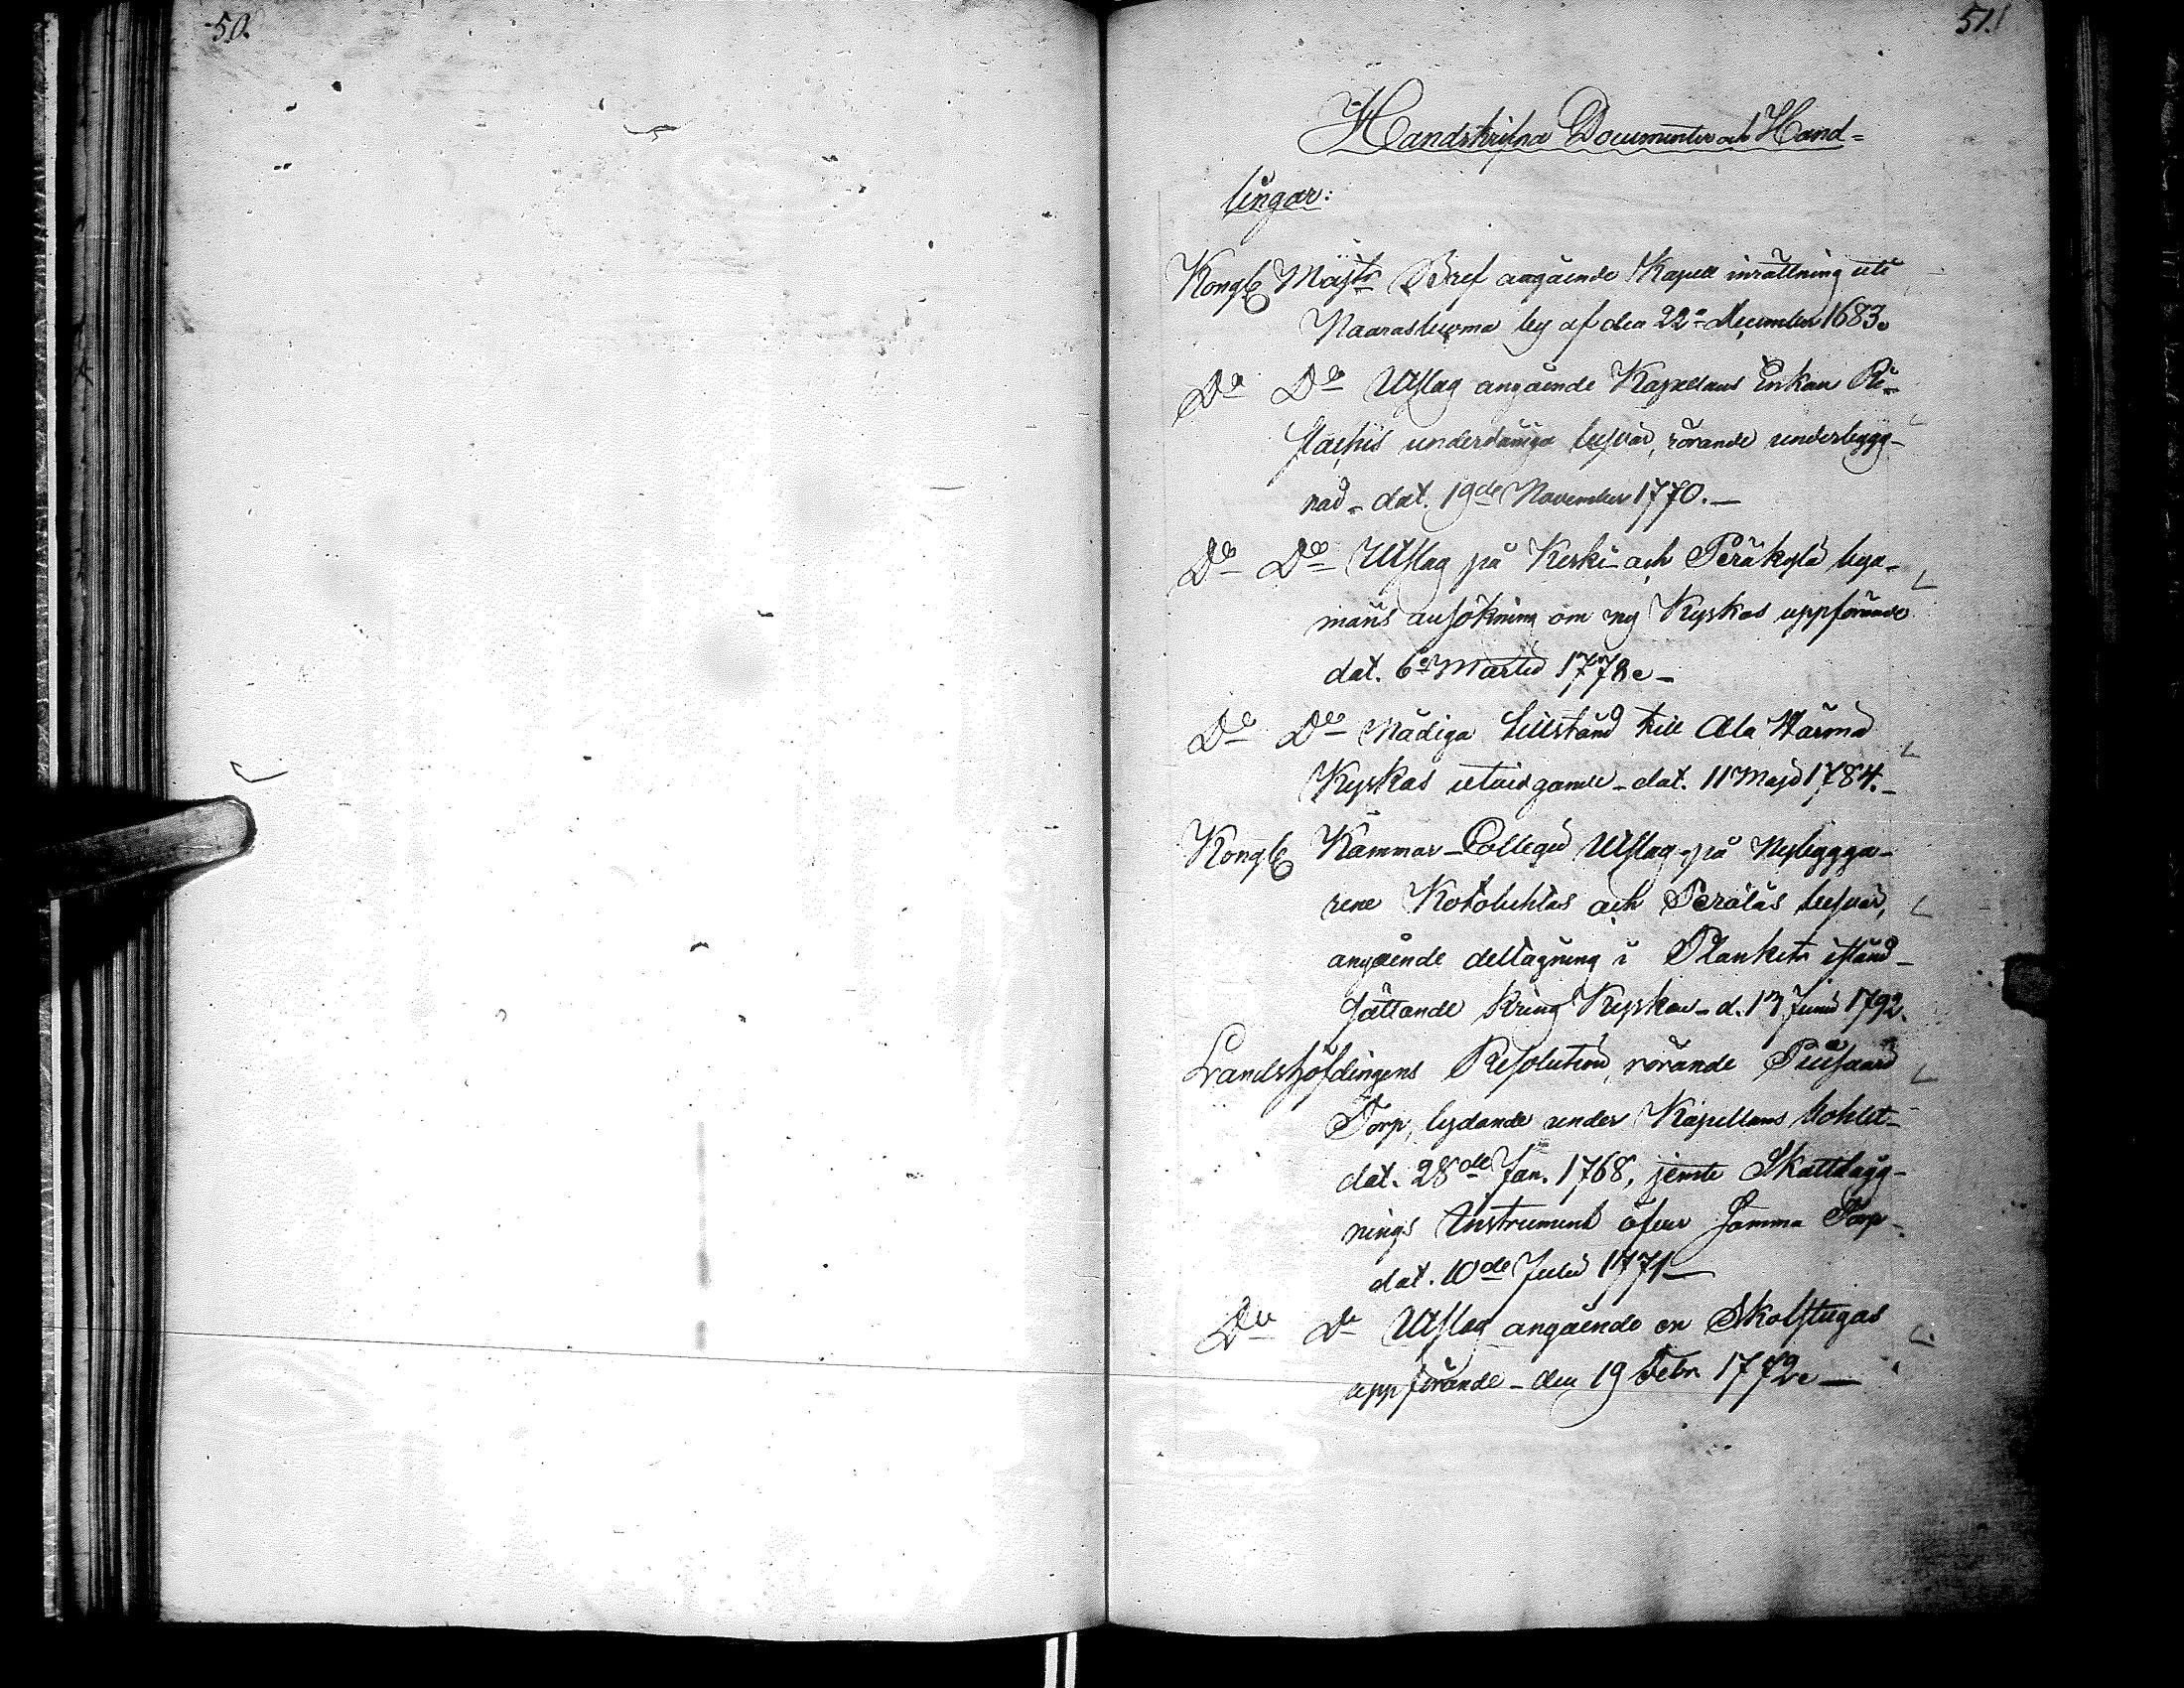 50.
51.
Handskrifna Documenter och Hand=
lingar:
Kongl Majts Bref angående Kapell inrättning uti
Naarasluoma by af den 22a December 1683.
Do Do Utslag angående Kapellans Enkan
underdåniga besvär, rörande underbygg-
nad - dat. 19de November 1770. -
Do Do Utslag på Keski- och Peräkylä bya-
mäns ansökning om ny Kyrkas uppförande
dat. 6 Martii 1778. -
Do Do Nådiga tillstånd till Ala Härmä
Kyrkas utvidgande - dat. 11 Maji 1784. -
Kongl Kammar-Collegii Utslag på Nybygga-
rene och Peräläs besvär,
angående deltagning i Plankets istånd-
sättande kring Kyrkan - d. 13 Junii 1792.
Landshöfdingens Resolution, rörande
Torp, lydande under Kapellans bohlet -
dat. 28de Jan. 1768, jemte Skattlägg-
nings Instrument öfver samma Torp -
dat. 10de Julii 1771 -
Do Do Utslag angående en Skolstugas
uppförande - den 19 Febr. 1772. -